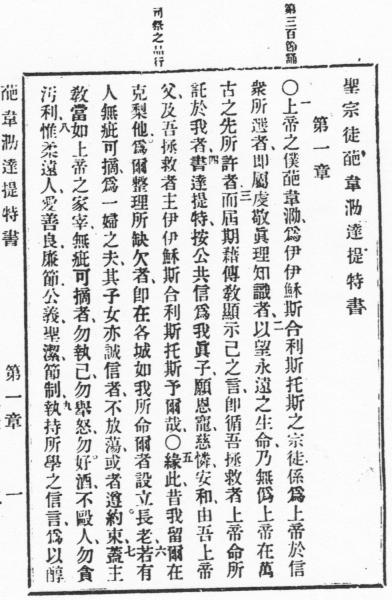 第三百節誦
司祭之品行
聖宗徒葩韋泐達提特書
第一章
〇一上帝之僕葩韋泐、爲伊伊穌斯合利斯托斯之宗徒、係爲上帝於信
衆所選者、卽屬虔敬眞理知識者、二以望永遠之生命、乃無僞上帝在萬
古之先所許者、三而屆期藉傳敎顯示己之言、卽循吾拯救者上帝命所
託於我者、四書達提特、按公共信爲我眞子、願恩寵慈憐安和、由吾上帝
父及吾拯救者主伊伊穌斯合利斯托斯予爾哉〇五緣此昔我留爾在
克梨他、爲爾整理所缺欠者、卽在各城如我所命爾者設立長老、六若有
人無疵可摘、爲一婦之夫、其子女亦誠信者、不放蕩、或者遵約束、七蓋主
敎當如上帝之家宰、無疵可摘者、勿執己、勿舉怒、勿好酒、不毆人、勿貪
汚利、八惟柔遠人、愛善良、廉節公義聖潔節制、九執持所學之信言、爲以醇
葩韋泐達提特書
第一章
一